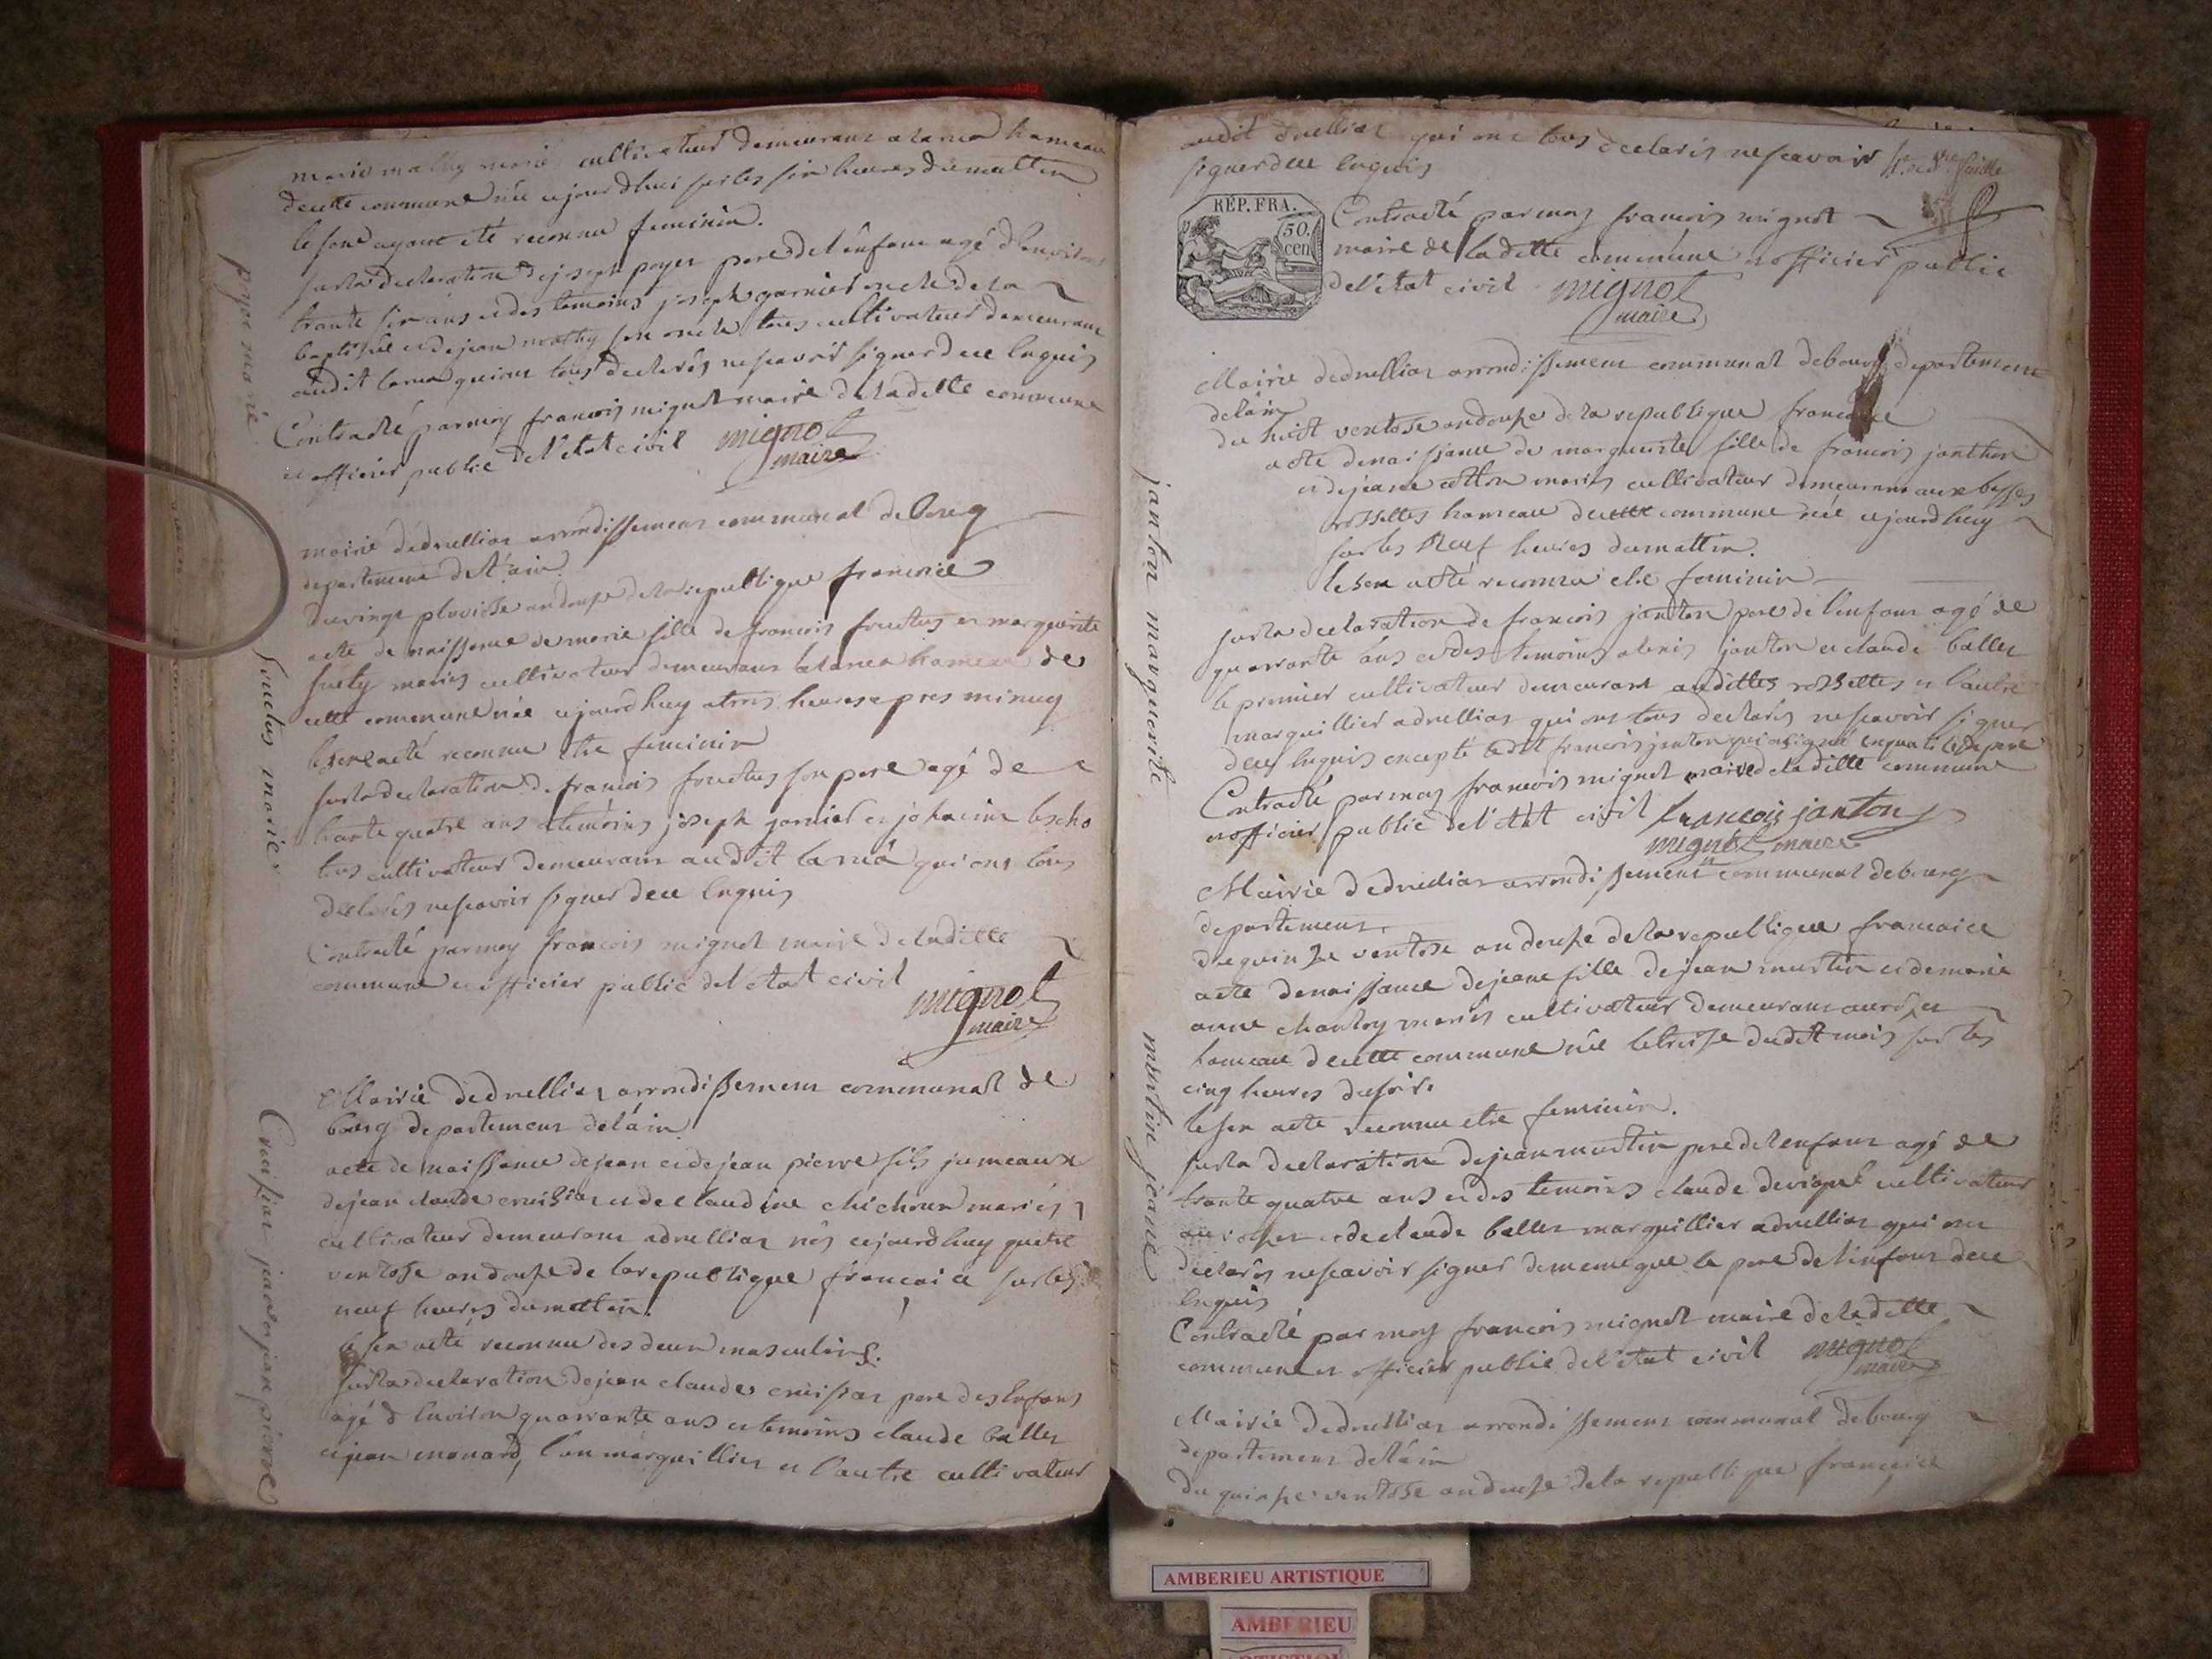 marie mathy mariés cultivateur demeurant a hameau
de cette commune née cejourdhui sur les six heures du mattin
le sexe ayant eté reconnu feminin.
sur la declaration de joseph poyer pere de l'enfant agé d'environ
trante six ans et des temoins joseph garnier oncle de la
baptisée et de jean mathy son oncle tous cultivateur demeurant
audit qui ont tous declarés ne scavoir signer de ce enquis
Contracté par moy francois mignot maire de la ditte commune
et officier public de l'etat civil mignot
maire
poyer marie
mairie de druillias arrondissement communal de bourg
departement de l'ain
du vingt pluviose an douze de la republique francoise
acte de naissance de marie fille de francois fructus et marguerite
mariés cultivateur demeurant a hameau de
cette commune née cejourdhuy a trois heures apres minuy
le sexe a eté reconnu etre feminin
sur la declaration de francois fructus son pere agé de
trante quatre ans et temoins joseph garnier et
tous cultivateur demeurant audit qui ont tous
declarés ne scavoir signer de ce enquis
Contracté par moy francois mignot maire de la ditte
commune et officier public de l'etat civil
mignot
maire
fructus marie
Mairie de druillias arrondissement communal de
bourg departement de l'ain
acte de naissance de jean et de jean pierre fils jumeaux
de jean claude et de claudine mariés
cultivateur demeurant a druillias nés cejourdhuy quatre
ventose an douze de la republique francaice sur les
neuf heures du mattin.
le sex a eté reconnu des deux masculins.
sur la declaration de jean claude pere des enfans
agé d'environ quarrante ans et temoins claude ballet
et jean monard, l'un marguillier et l'autre cultivateur
jean et jean pierre
audit druillias qui ont tous declaris ne scavoir
signer de ce enquis
RÉP. FRA.
50.
cen
Contracté par moy francois mignot
maire de la ditte commune et officier public
de l'etat civil mignot
maire
Mairie de druillias arrondissement communal de bourg departement
de l'ain
du huict ventose an douze de la republique francaise
acte de naissance de marguerite fille de francois janthon
et de jeane cotton mariés cultivateur demeurant aux basses
rosettes hameau de cette commune née cejourdhuy
sur les neuf heures du mattin.
le sex a eté reconnu etre feminin
sur la declaration de francois janton pere de l'enfant agé de
quarrante ans et des temoins janton et claude ballet
le premier cultivateur demeurant auddittes rossettes et l'autre
marguillier a druillias qui ont tous declarés ne scavoir signer
de ce enquis excepté ledit francois janton qui a signé en qualité de pere
Contracté par moy francois mignot maire de la ditte commune
et officier public de l'etat civil francois janton
mignot maire
janton marguerite
Mairie de druillias arrondissement communal de bourg
departement
du quinze ventose an douze de la republique francaice
acte de naissance de jeane fille de jean martin et de marie
anne mariés cultivateur demeurant
hameau de cette commune née le treise dudit mois sur les
cinq heures du soir.
le sex a eté reconnu etre feminin.
sur la declaration de jean martin pere de l'enfant agé de
trante quatre ans et des temoins claude cultivateur
et de claude ballet marguillier a druillias qui ont
declarés ne scavoir signer de meme que le pere de l'enfant de ce
enquis
Contracté par moy francois mignot maire de la ditte
commune et officier public de l'etat civil mignot
maire
martin jeane
Mairie de druillias arrondissement communal de bourg
departement de l'ain
du quinze ventose an douze de la republique francaice
AMBERIEU ARTISTIQUE
AMBERIEU
ARTISTIQUE